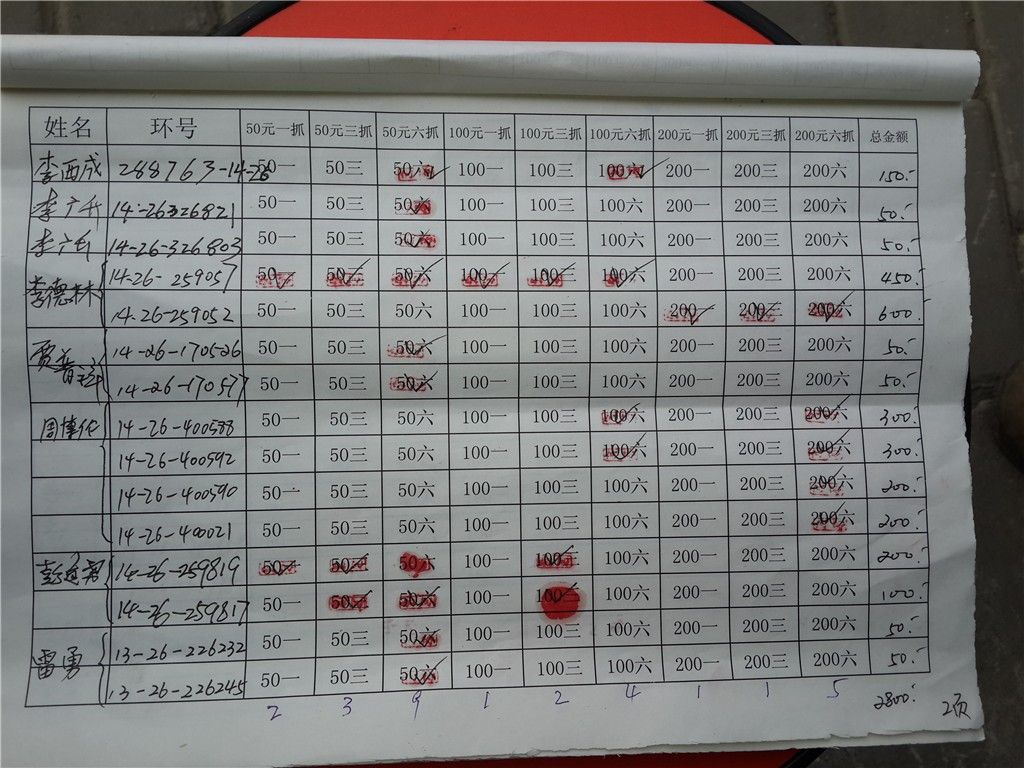 姓名 环号 50元一抓 50元三抓 50元六抓 100元一抓 100元三抓 100元六抓 200元一抓 200元三抓 200元六抓 总金额
李西成 288763-14-26 50一 50三 50六 100一 100三 100六 200一 200三 200六 150.-
李广千 14-26326821 50一 50三 50六 100一 100三 100六 200一 200三 200六 50.-
李广千 14-26-326803 50一 50三 50六 100一 100三 100六 200一 200三 200六 50.-
李德林 14-26-259057 50一 50三 50六 100一 100三 100六 200一 200三 200六 450.-
14.26-259052 50一 50三 50六 100一 100三 100六 200一 200三 200六 600.-
贾 14-26-170526 50一 50三 50六 100一 100三 100六 200一 200三 200六 50.-
14-26-170577 50一 50三 50六 100一 100三 100六 200一 200三 200六 50.-
周 14-26-400588 50一 50三 50六 100一 100三 100六 200一 200三 200六 300.-
14-26-400592 50一 50三 50六 100一 100三 100六 200一 200三 200六 300.-
14-26-400590 50一 50三 50六 100一 100三 100六 200一 200三 200六 200.-
14-26-400021 50一 50三 50六 100一 100三 100六 200一 200三 200六 200.-
彭 14-26-259819 50一 50三 50六 100一 100三 100六 200一 200三 200六 200.-
14-26-259817 50一 50三 50六 100一 100三 100六 200一 200三 200六 100.-
雷勇 13-26-226232 50一 50三 50六 100一 100三 100六 200一 200三 200六 50.-
13-26-226245 50一 50三 50六 100一 100三 100六 200一 200三 200六 50.-
2 3 9 1 2 4 1 1 5 2800.- 2页